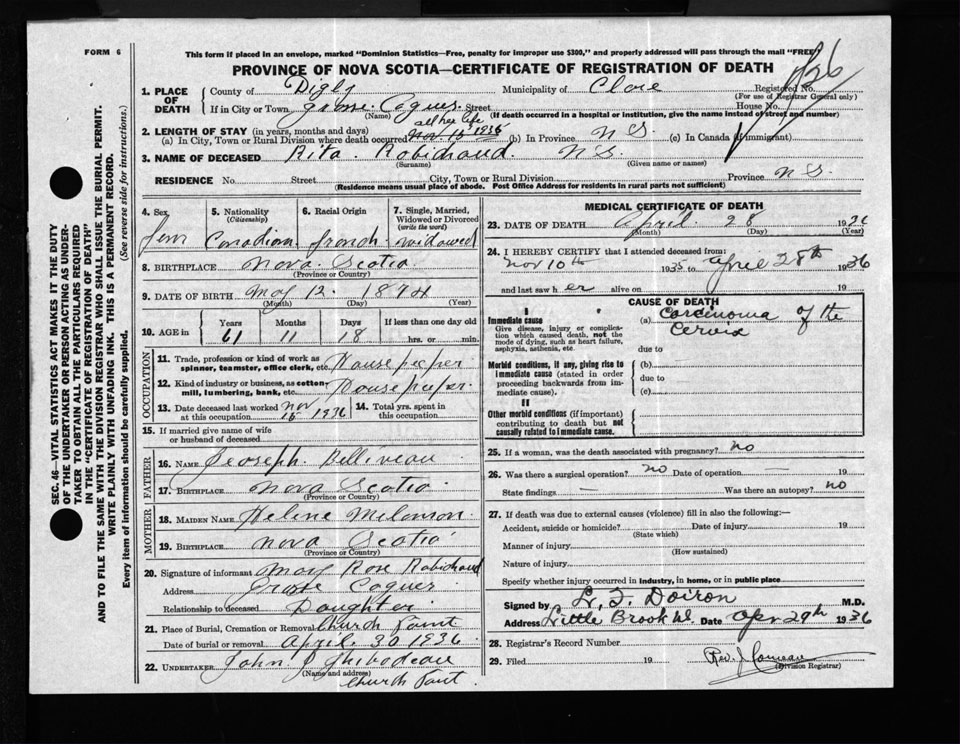 FORM 6
This form if placed in an envelope, marked "Dominion Statistics—Free, penalty for improper use $300," and properly addressed will pass through the mail "FREE"
PROVINCE OF NOVA SCOTIA—CERTIFICATE OF REGISTRATION OF DEATH
SEC. 46—VITAL STATISTICS ACT MAKES IT THE DUTY
OF THE UNDERTAKER OR PERSON ACTING AS UNDER-
TAKER TO OBTAIN ALL THE PARTICULARS REQUIRED
IN THE "CERTIFICATE OF REGISTRATION OF DEATH"
AND TO FILE THE SAME WITH THE DIVISION REGISTRAR WHO SHALL ISSUE THE BURIAL PERMIT.
WRITE PLAINLY WITH UNFADING INK. THIS IS A PERMANENT RECORD.
Every item of information should be carefully supplied. (See reverse side for instructions.)
1. PLACE OF DEATH
County of Digby Municipality of Clare Registered No.
(For use of Registrar General only)
If in City or Town Coques Street House No.
(Name) (If death occurred in a hospital or institution, give the name instead of street and number)
2. LENGTH OF STAY (in years, months and days) all her life
(a) In City, Town or Rural Division where death occurred Nov. 15 1936 (b) In Province N S. (c) In Canada (if immigrant)
3. NAME OF DECEASED Rita Robichaud. N S.
(Surname) (Given name or names)
RESIDENCE No. Street City, Town or Rural Division Province N S.
(Residence means usual place of abode. Post Office Address for residents in rural parts not sufficient)
4. Sex Fem
5. Nationality (Citizenship) Canadian
6. Racial Origin french
7. Single, Married, Widowed or Divorced (write the word) widowed
8. BIRTHPLACE Nova Scotia
(Province or Country)
9. DATE OF BIRTH May 12 1874
(Month) (Day) (Year)
10. AGE in Years Months Days If less than one day old
61 11 18 hrs. or min.
OCCUPATION
11. Trade, profession or kind of work as spinner, teamster, office clerk, etc. House keeper
12. Kind of industry or business, as cotton-mill, lumbering, bank, etc. House keeper
13. Date deceased last worked at this occupation Nov 15 1936 14. Total yrs. spent in this occupation
15. If married give name of wife or husband of deceased
FATHER
16. NAME Jeoseph Belliveau
17. BIRTHPLACE Nova Scotia
(Province or Country)
MOTHER
18. MAIDEN NAME Helene Melanson
19. BIRTHPLACE Nova Scotia
(Province or Country)
20. Signature of informant Mary Rose Robichaud
Address Coques
Relationship to deceased Daughter
21. Place of Burial, Cremation or Removal Church Point
Date of burial or removal April 30 1936
22. UNDERTAKER John J Thibodeau
(Name and address)
Church Point.
MEDICAL CERTIFICATE OF DEATH
23. DATE OF DEATH April 28 1936
(Month) (Day) (Year)
24. I HEREBY CERTIFY that I attended deceased from:
Nov 10th 1935 to April 28th 1936
and last saw h er alive on 19
CAUSE OF DEATH
I
Immediate cause (a) Carcinoma of the Cervix
Give disease, injury or complication which caused death, not the mode of dying, such as heart failure, asphyxia, asthenia, etc.
due to
Morbid conditions, if any, giving rise to immediate cause (stated in order proceeding backwards from immediate cause). (b)
due to
(c)
II
Other morbid conditions (if important) contributing to death but not causally related to immediate cause.
25. If a woman, was the death associated with pregnancy? no
26. Was there a surgical operation? no Date of operation — 19
State findings — Was there an autopsy? no
27. If death was due to external causes (violence) fill in also the following:—
Accident, suicide or homicide? Date of injury 19
(State which)
Manner of injury
(How sustained)
Nature of injury
Specify whether injury occurred in industry, in home, or in public place
Signed by L. F. Doiron M.D.
Address Little Brook Date Apr 29th 1936
28. Registrar's Record Number
29. Filed 19 Rev. J Comeau
(Division Registrar)